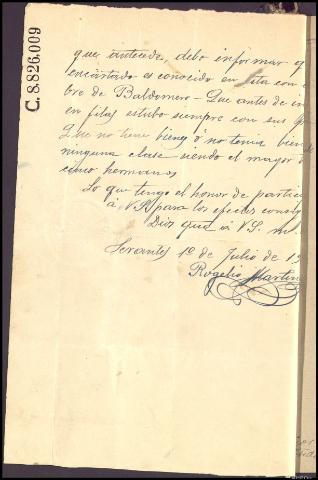 C.8.826.009
que antecede, debo informar q
encartado es conocido en esta con
bre de Baldomero - Que antes de in
en filas estubo siempre con sus
Que no tiene bienes ó no tenia bien
ninguna clase siendo el mayor d
cinco hermanos
Lo que tengo el honor de partici
á V.S. para los efectos consig
Dios gue á V.S. m.
Serantes 1º de Julio de 19
Rogelio Martin